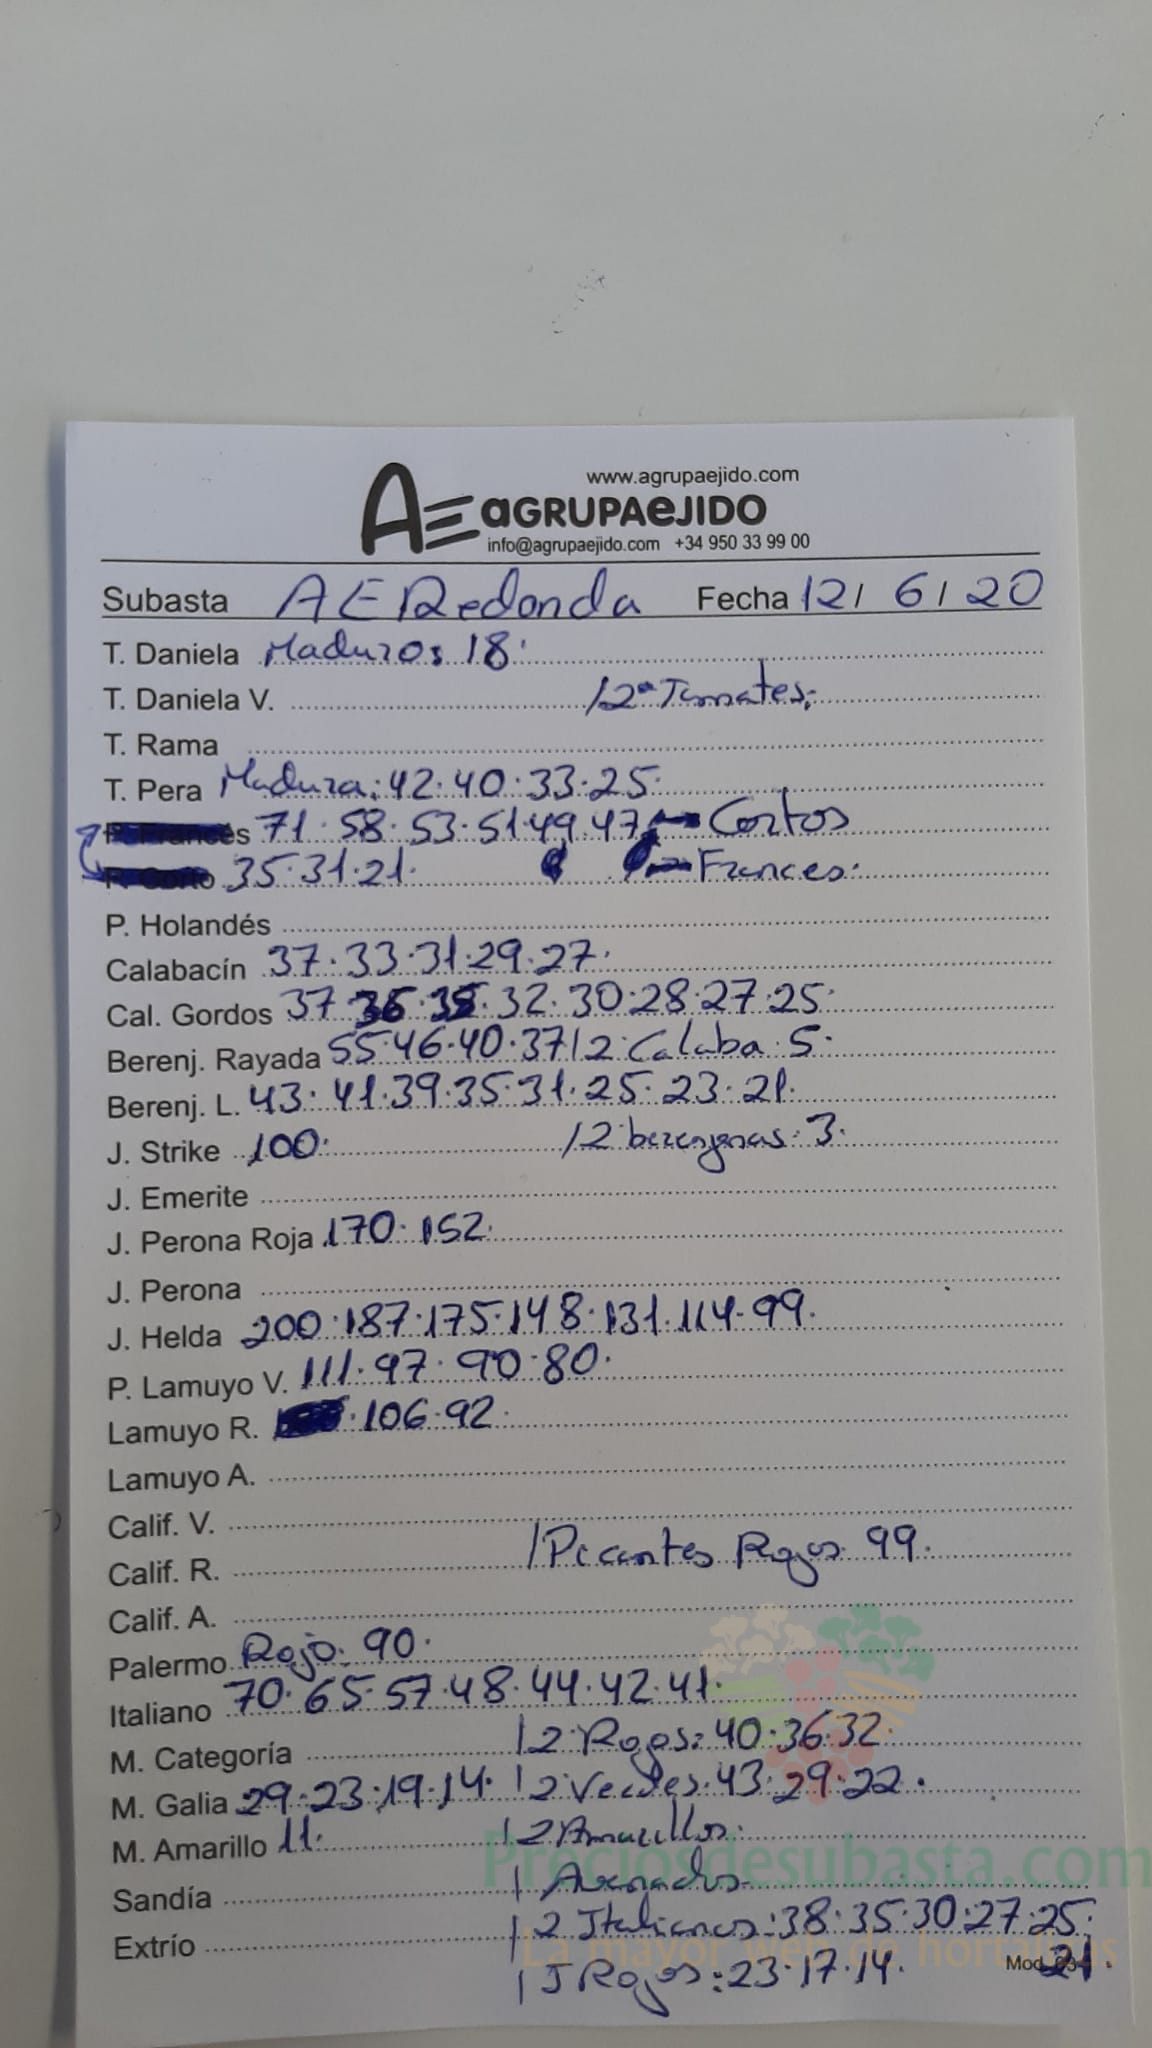 www.agrupaejido.com
AE aGRUPAeJIDO
info@agrupaejido.com +34 950 33 99 00
Subasta AE Redonda Fecha 12/ 6/ 20
T. Daniela Maduros 18.
T. Daniela V. /2ª Tomates:
T. Rama
T. Pera Madura: 42. 40. 33. 25.
P. Francés 71. 58. 53. 51. 49. 47. Cortos
P. Corto 35. 31. 21. Frances.
P. Holandés
Calabacín 37. 33. 31. 29. 27.
Cal. Gordos 37 36. 35. 32. 30. 28. 27. 25.
Berenj. Rayada 55. 46. 40. 37 /2ª Calaba. 5.
Berenj. L. 43. 41. 39. 35. 31. 25. 23. 21.
J. Strike 100. /2 berenjenas. 3.
J. Emerite
J. Perona Roja 170. 152.
J. Perona
J. Helda 200. 187. 175. 148. 131. 114. 99.
P. Lamuyo V. 111. 97. 90. 80.
Lamuyo R. 106. 92.
Lamuyo A.
Calif. V.
Calif. R. /Picantes Rojos. 99.
Calif. A.
Palermo Rojo. 90.
Italiano 70. 65. 57. 48. 44. 42. 41.
M. Categoría /2 Rojos: 40. 36. 32.
M. Galia 29. 23. 19. 14. /2 Verdes. 43. 29. 22.
M. Amarillo 11. /2 Amarillos.
Preciosdesubasta.com
Sandía /
Extrío /2 Italianos: 38. 35. 30. 27. 25.
La mayor web de hortalizas
/J Rojos: 23. 17. 14. Mod. 21.